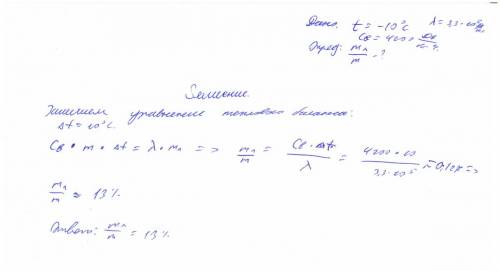 Дано: t = -10°C λ = 3,3·10⁵
Cв = 4200
Опред: mл/m - ?
Решение.
Запишем уравнение теплового баланса:
Δt = 10°C.
Cв · m · Δt = λ · mл => mл/m = Cв · Δt/λ = 4200 · 10/3,3 · 10⁵ =>
mл/m ≈ 13%
Ответ: mл/m = 13%